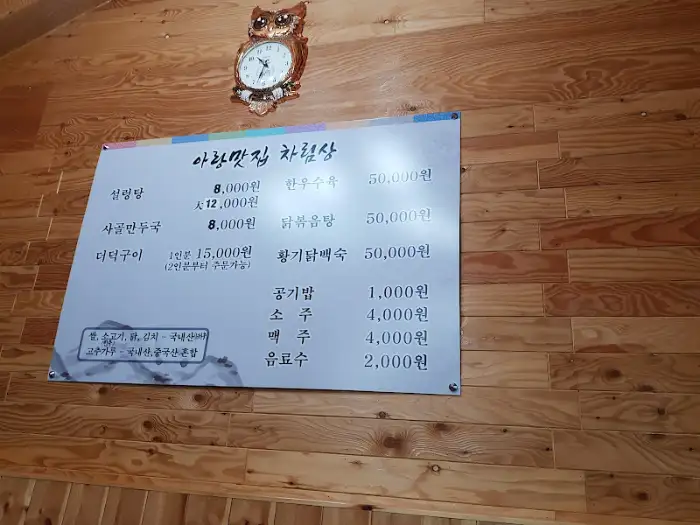 아랑맛집 차림상
설렁탕 8,000원
大12,000원
사골만두국 8,000원
더덕구이 1인분 15,000원
(2인분부터 주문가능)
한우수육 50,000원
닭볶음탕 50,000원
황기닭백숙 50,000원
공기밥 1,000원
소 주 4,000원
맥 주 4,000원
음료수 2,000원
쌀, 소고기, 닭, 김치 - 국내산
고추가루 - 국내산, 중국산 혼합